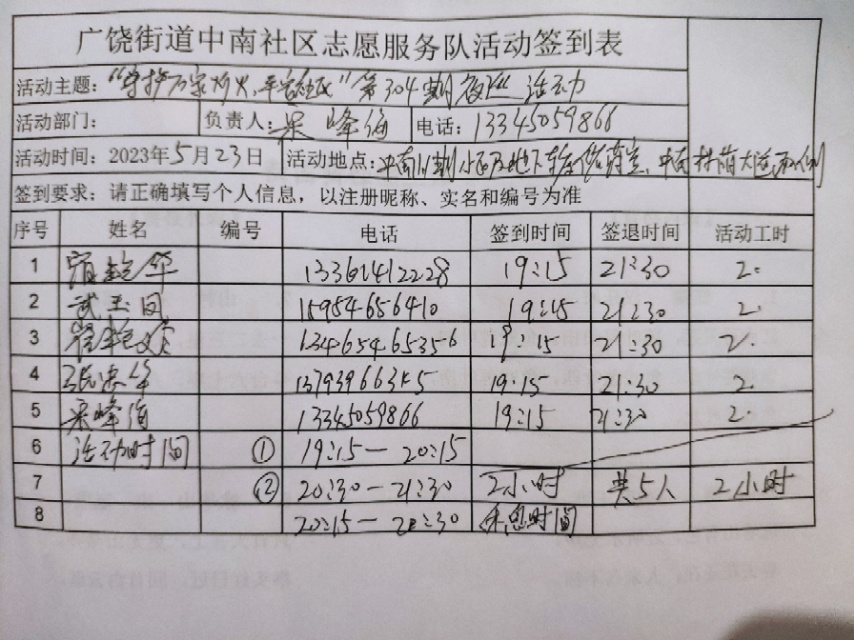 广饶街道中南社区志愿服务队活动签到表
活动主题:“守护万家灯火,平安社区”第304期夜巡活动
活动部门: 负责人: 峰海 电话: 13345059866
活动时间: 2023年5月23日 活动地点: 中南 期小区及地下车库 中南 大道两侧
签到要求: 请正确填写个人信息,以注册昵称、实名和编号为准
序号 姓名 编号 电话 签到时间 签退时间 活动工时
1 华 13361412228 19:15 21:30 2.
2 武玉凤 15954656410 19:15 21:30 2.
3 崔艳 13465465356 19:15 21:30 2.
4 张忠华 13793966345 19:15 21:30 2.
5 峰海 13345059866 19:15 21:30 2.
6 活动时间 ① 19:15— 20:15
7 ② 20:30—21:30 2小时 共5人 2小时
8 20:15— 20:30 休息时间